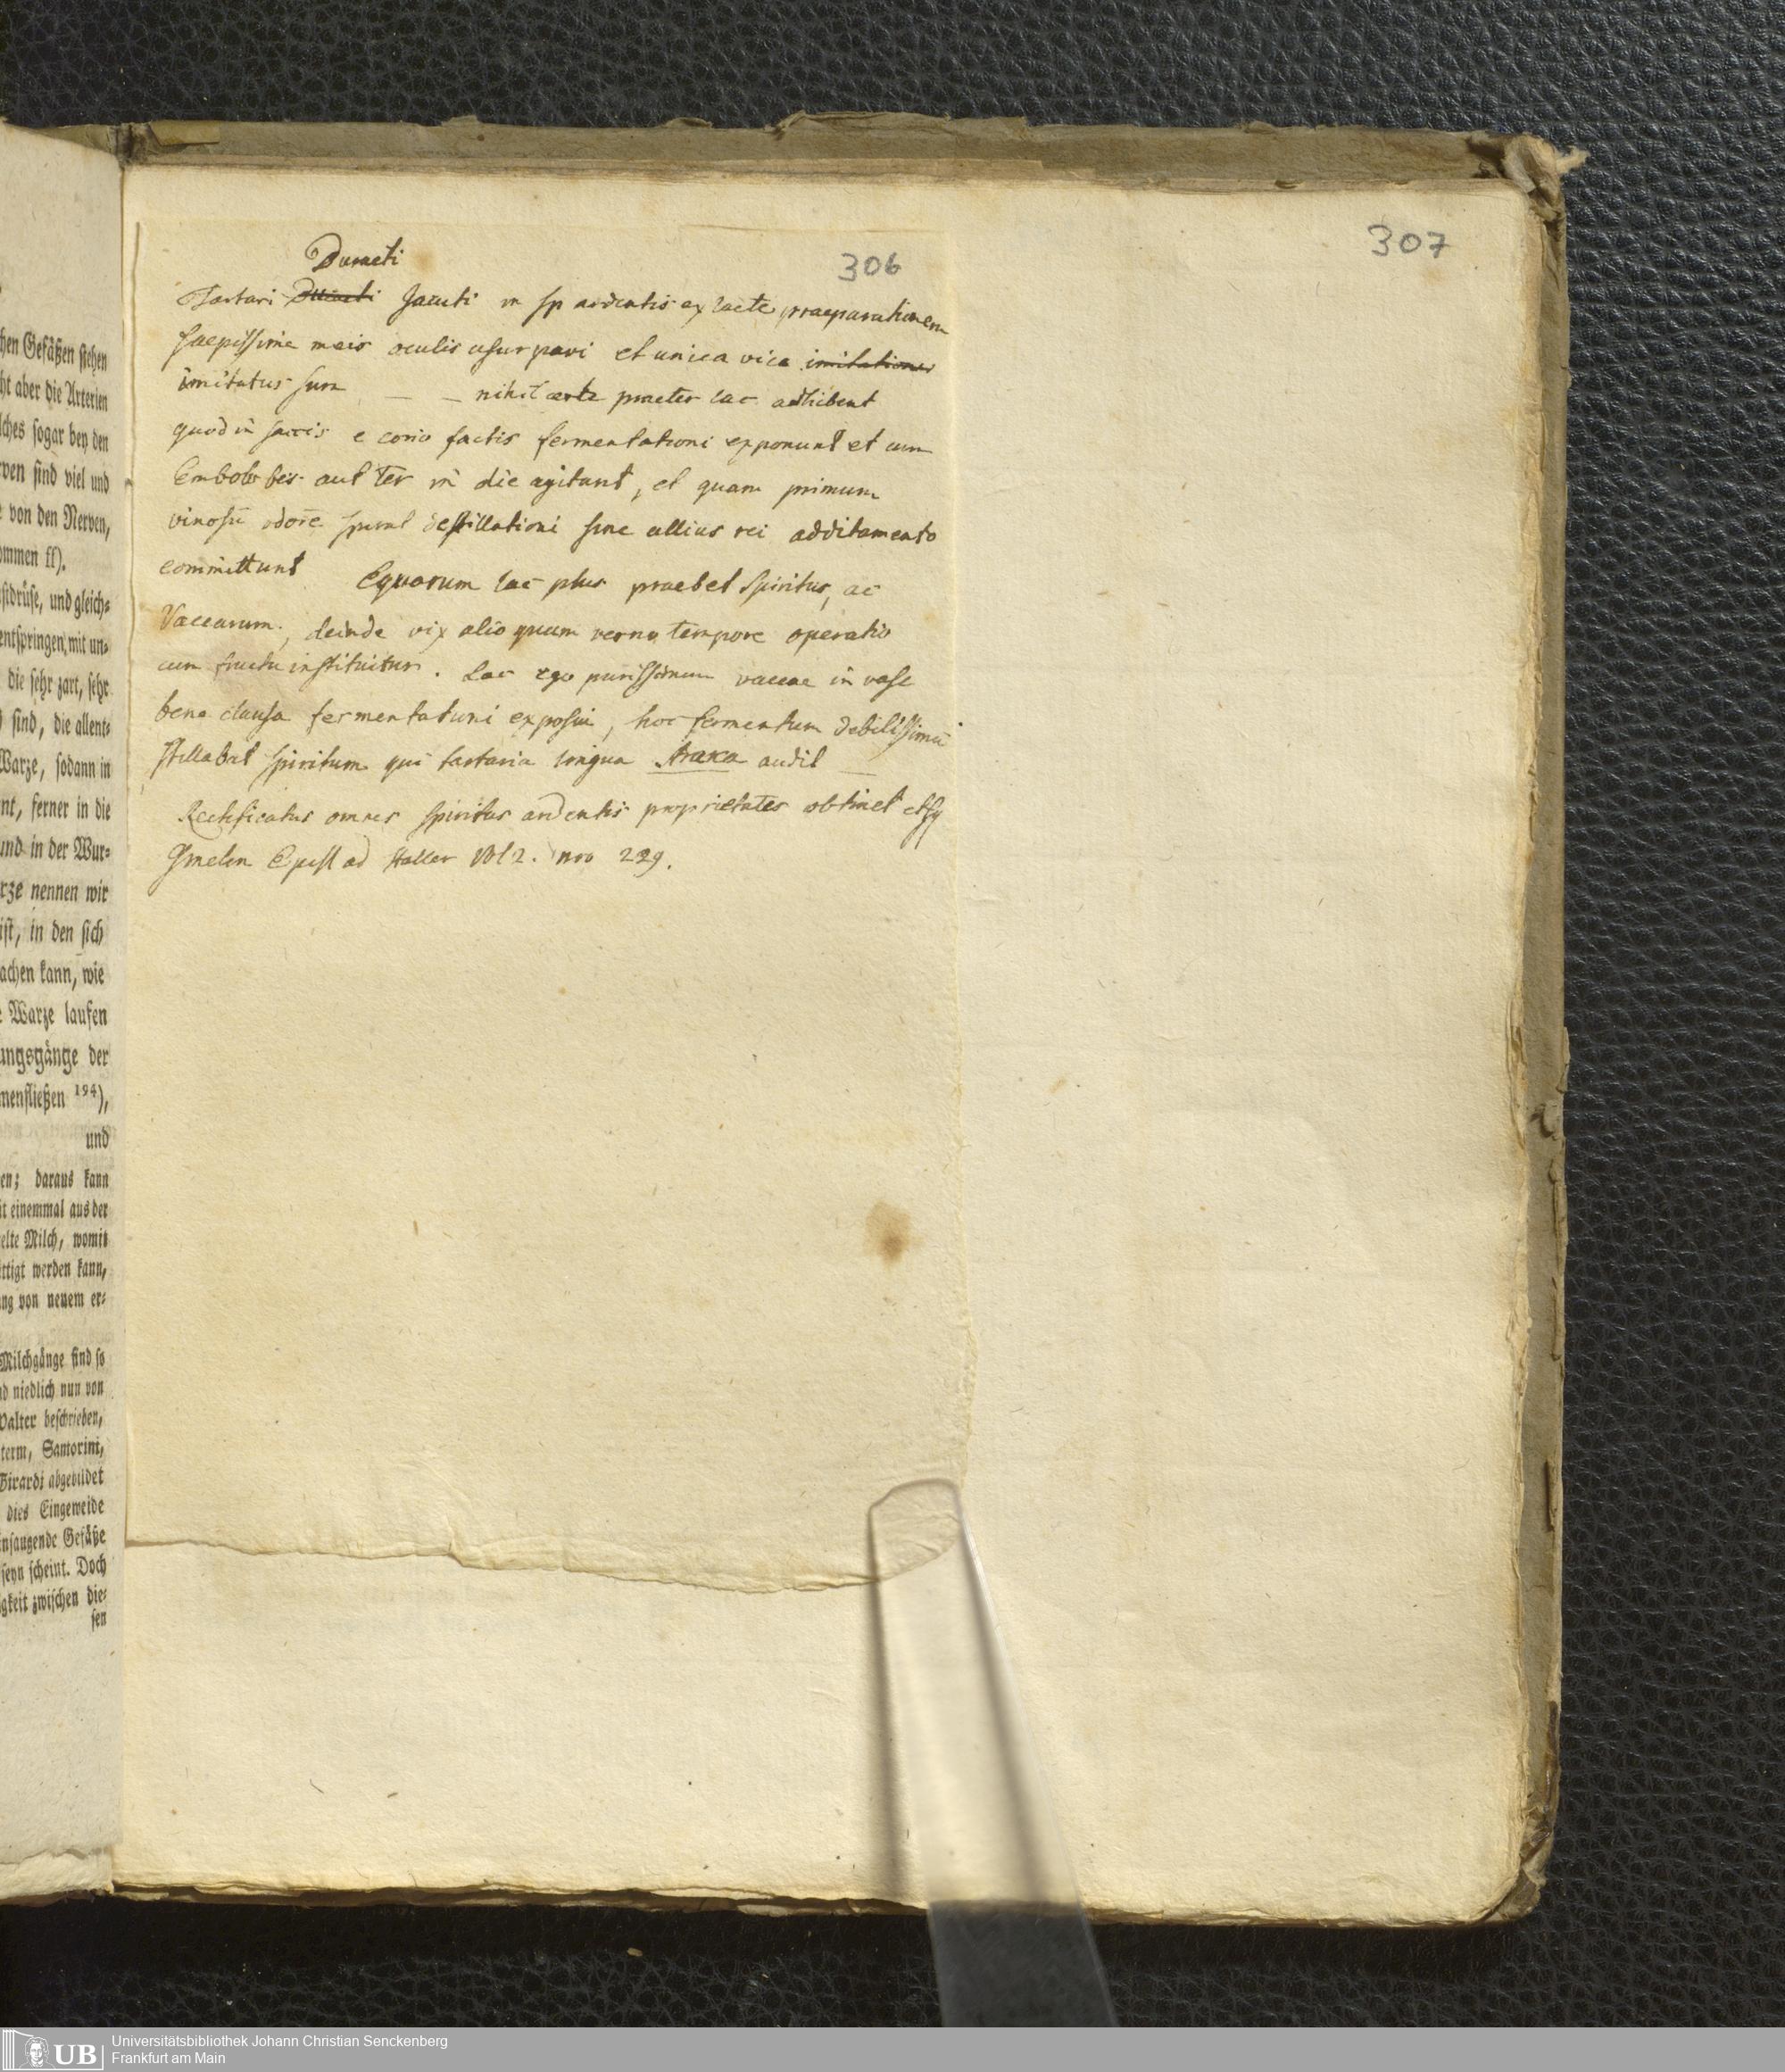 chen Gefäßen stehen
ht aber die Arterien
lches sogar bey den
ven sind viel und
von den Nerven,
ommen ff).
stdrüse, und gleich-
entspringen, mit un-
die sehr zart, sehr
sind, die allent-
Warze, sodann in
nt, ferner in die
und in der Wur-
rze nennen wir
ist, in den sich
achen kann, wie
Warze laufen
ungsgänge der
menfließen 194),
und
en; daraus kann
it einemmal aus der
elte Milch, womit
ttigt werden kann,
ng von neuem er-
Milchgänge sind so
nd niedlich nun von
Walter beschrieben,
term, Santorini,
Girardi abgebildet
dies Eingeweide
insaugende Gefäße
seyn scheint. Doch
gkeit zwischen die-
sen
306
307
Buraeti
Tartari Jacuti in sp ardentis ex lacte praeparationem
saepissime meis oculis usurpavi et unica vice imitationes
imitatus sum _ _ nihil certe praeter lac adhibent
quod in saccis e corio factis fermentationi exponunt et cum
Embolo bis aut ter in die agitant, et quam primum
vinosū odorē spirat destillationi sine ullius rei additamento
committunt Equarum lac plus praebet Spiritus, ac
Vaccarum, deinde vix alio quam verno tempore operatio
cum fructu instituitur. Lac ego purissimum vaccae in vase
bene clauso fermentationi exposui, hoc fermentum debilissimū
stillabat spiritum qui tartaria lingua Araka audit _
Rectificatus omnes spiritus ardentis proprietates obtinet
Gmelin Epist ad Haller Vol 2. nro 229.
UB
Universitätsbibliothek Johann Christian Senckenberg
Frankfurt am Main